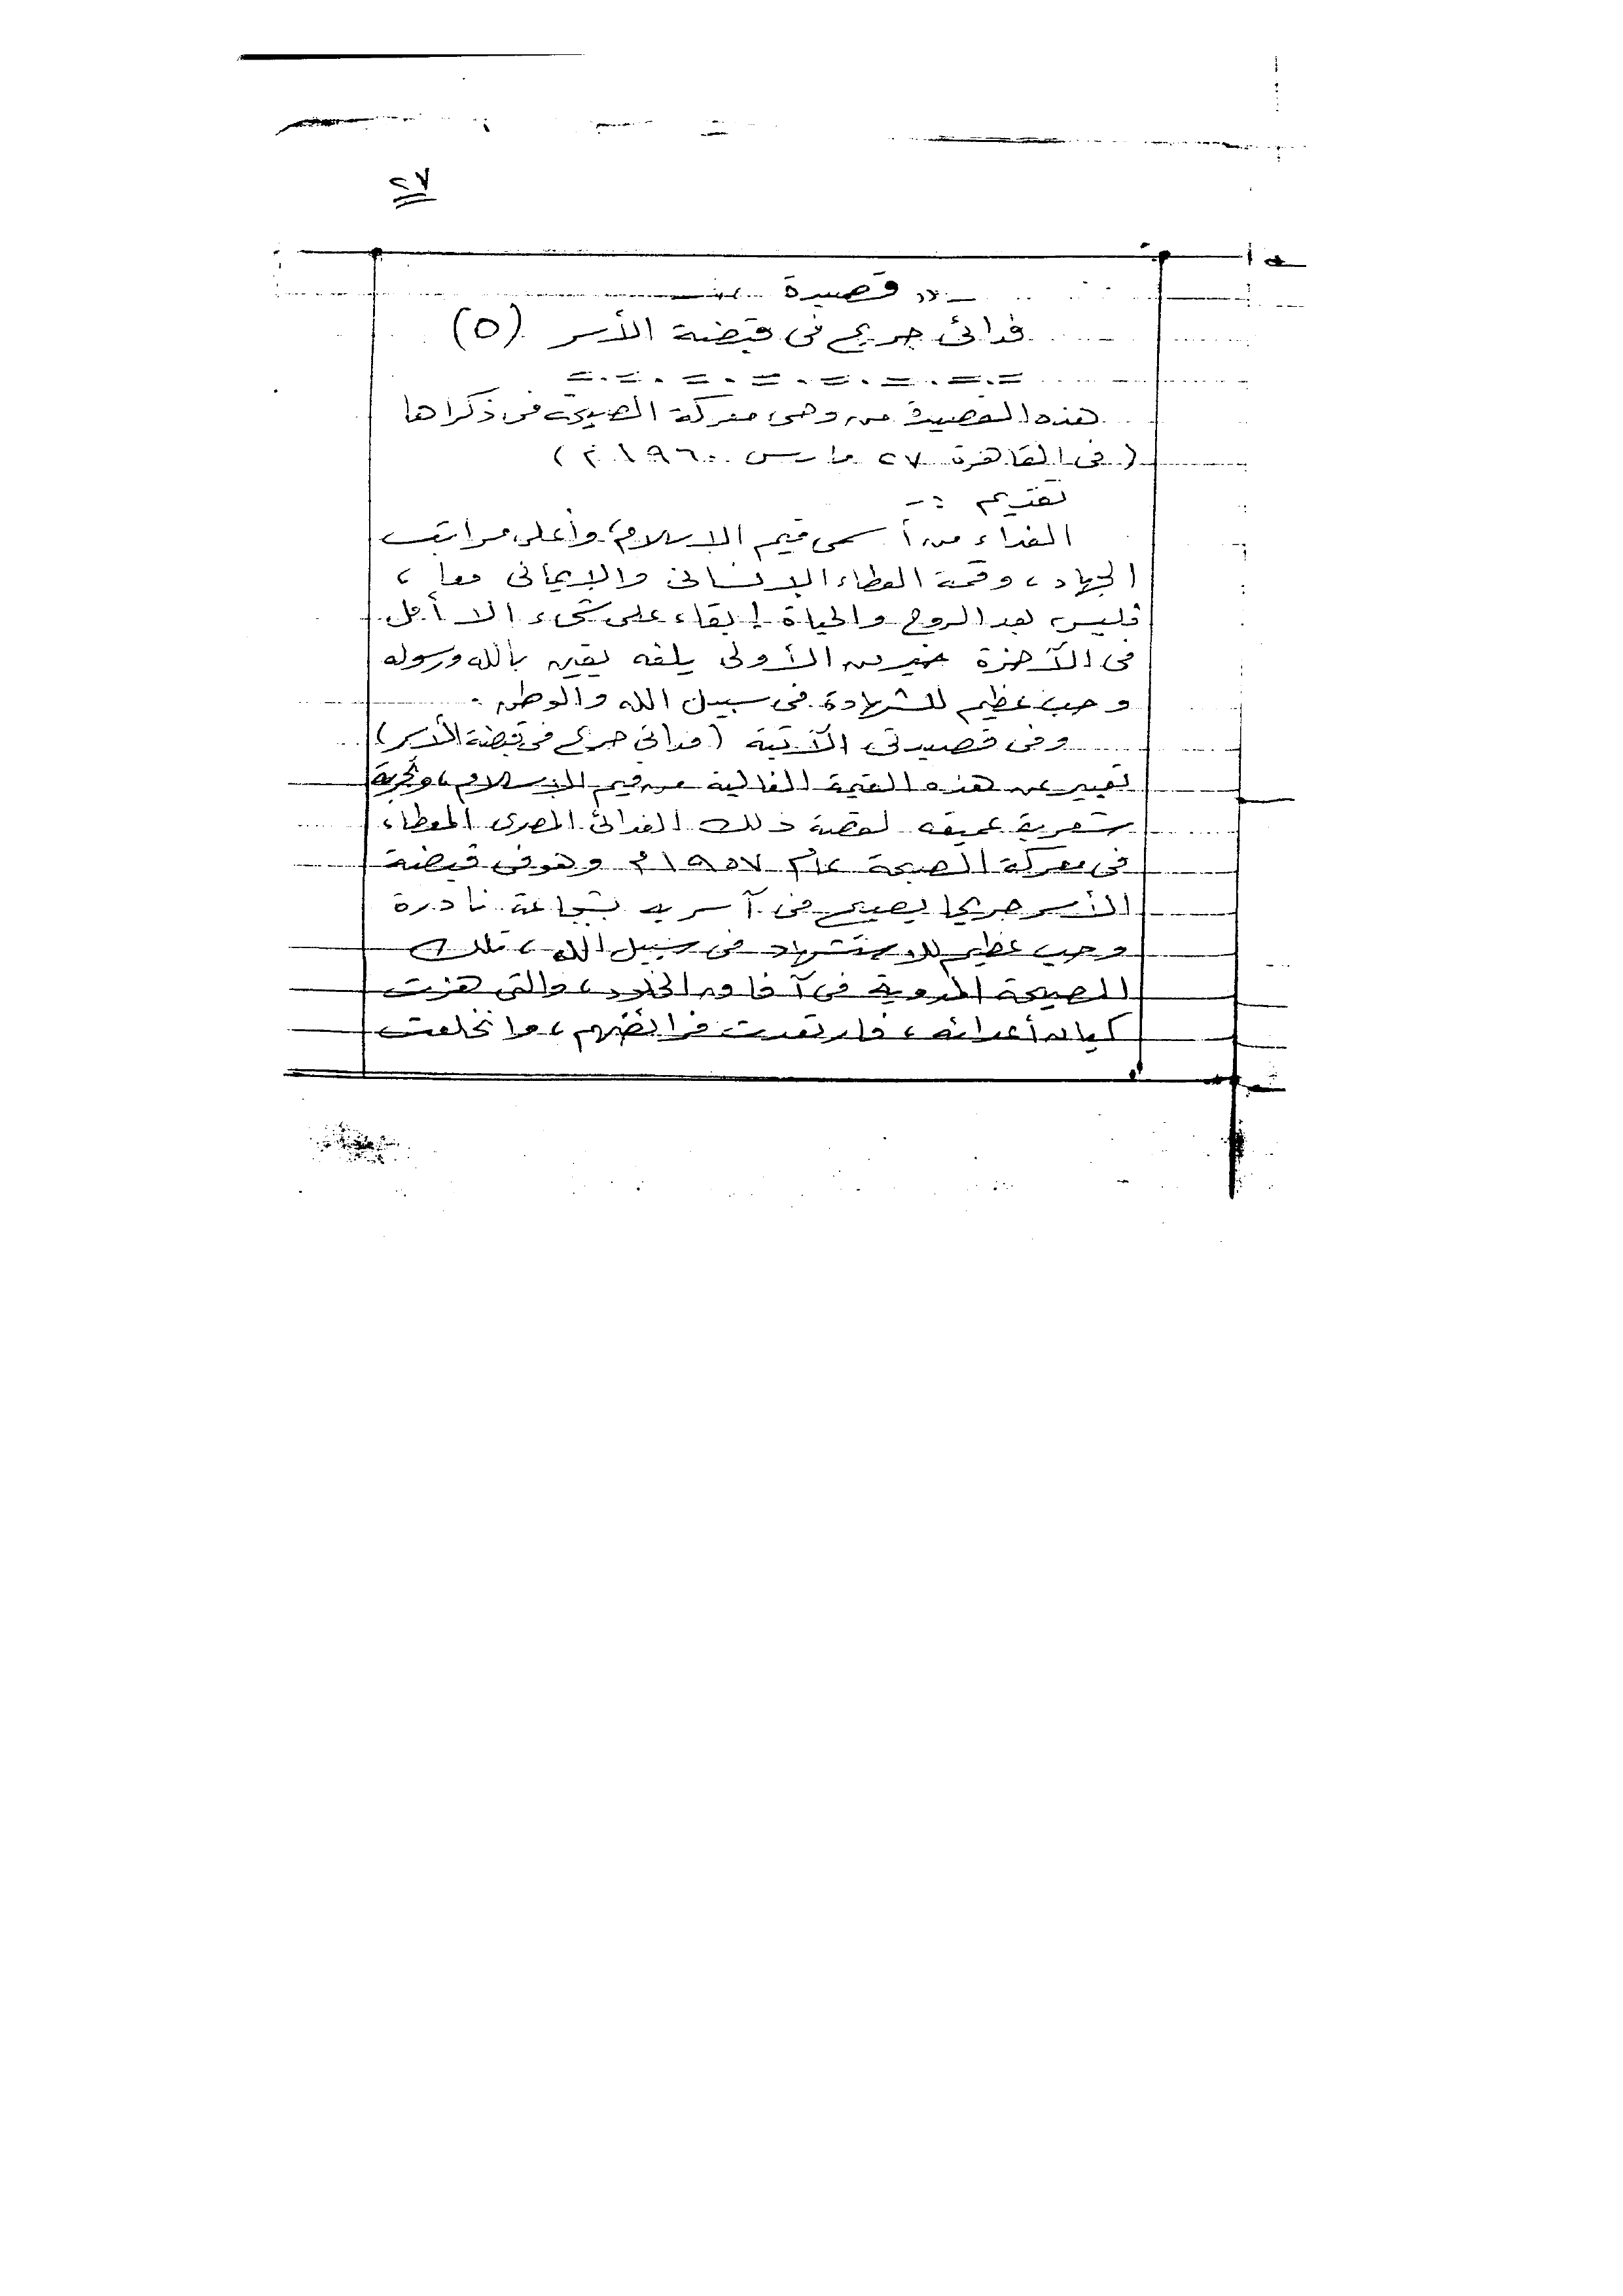 ٢٧
قصيدة
فدائى جريح فى قبضة الأسر (٥)
هذه القصيدة من وحى معركة الصبحة فى ذكراها
(فى القاهرة ٢٧ مارس ١٩٦٠ م)
تقديم :-
الفداء من أسمى قيم الإسلام، وأعلى مراتب
الجهاد، وقمة العطاء الإنسانى والإيمانى معا،
فليس بعد الروح والحياة إبقاء على شىء الا أمل
فى الآخرة خير من الأولى يلفه يقين بالله ورسوله
وحب عظيم للشهادة فى سبيل الله والوطن.
وفى قصيدتى الآتية (فدائى جريح فى قبضة الأسر)
تعبير عن هذه القيمة الغالية من قيم الإسلام، وتجربة
شعرية عميقة لقصة ذلك الفدائى المصرى المعطاء
فى معركة الصبحة عام ١٩٥٧م وهو فى قبضة
الأسر جريحا يصيح فى آسريه بشجاعة نادرة
وحب عظيم للاستشهاد فى سبيل الله، تلك
الصيحة المدوية فى آفاق الخلود، والتى هزت
كيان أعدائه، فارتعدت فرائضهم، وانخلعت